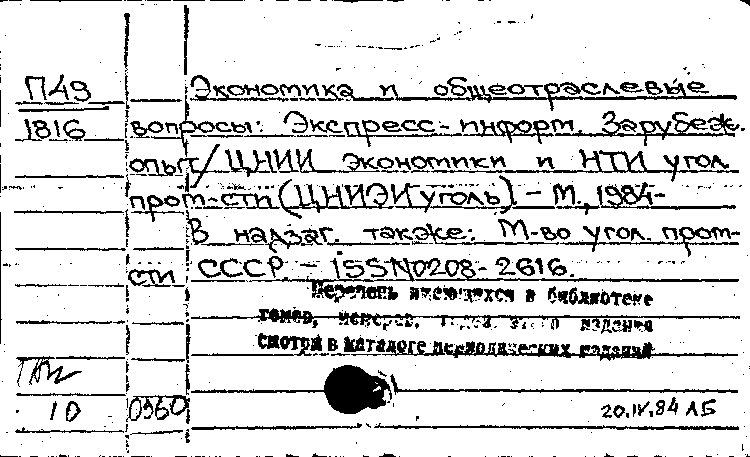 П49 Экономика и общеотраслевые
1816 вопросы: Экспресс-информ. Зарубеж.
опыт/ЦНИИ экономики и НТИ угол.
пром-сти (ЦНИЭИуголь) - М., 1984-
В надзаг. также: М-во угол. пром-
сти СССР. - ISSN0208-2616.
Перечень имеющихся в библиотеке
номер, этого издания
смотри в каталоге периодических изданий
10 0960 20.IV.84 АБ